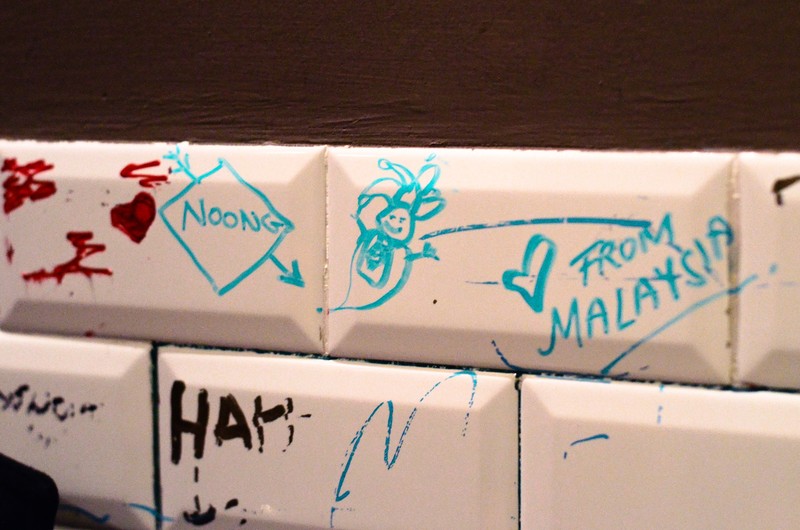 NOONG
FROM
MALAYSIA
HAH